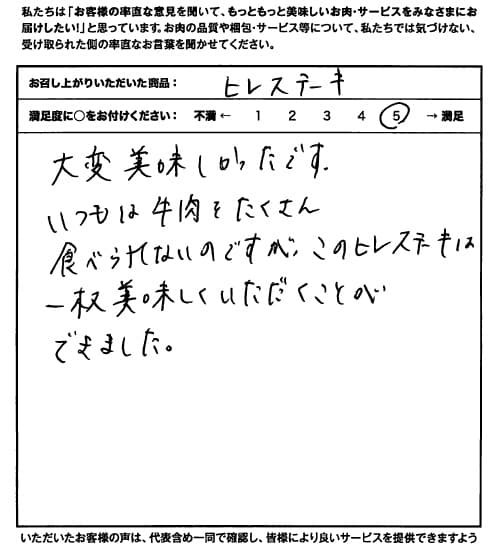 私たちは「お客様の率直な意見を聞いて、もっともっと美味しいお肉・サービスをみなさまにお
届けしたい!」と思っています。お肉の品質や梱包・サービス等について、私たちでは気づけない、
受け取られた側の率直なお言葉を聞かせてください。
お召し上がりいただいた商品： ヒレステーキ
満足度に○をお付けください： 不満 ← 1 2 3 4 5 → 満足
大変美味しかったです.
いつもは牛肉をたくさん
食べられないのですが、このヒレステーキは
一枚美味しくいただくことが
できました。
いただいたお客様の声は、代表含め一同で確認し、皆様により良いサービスを提供できますよう